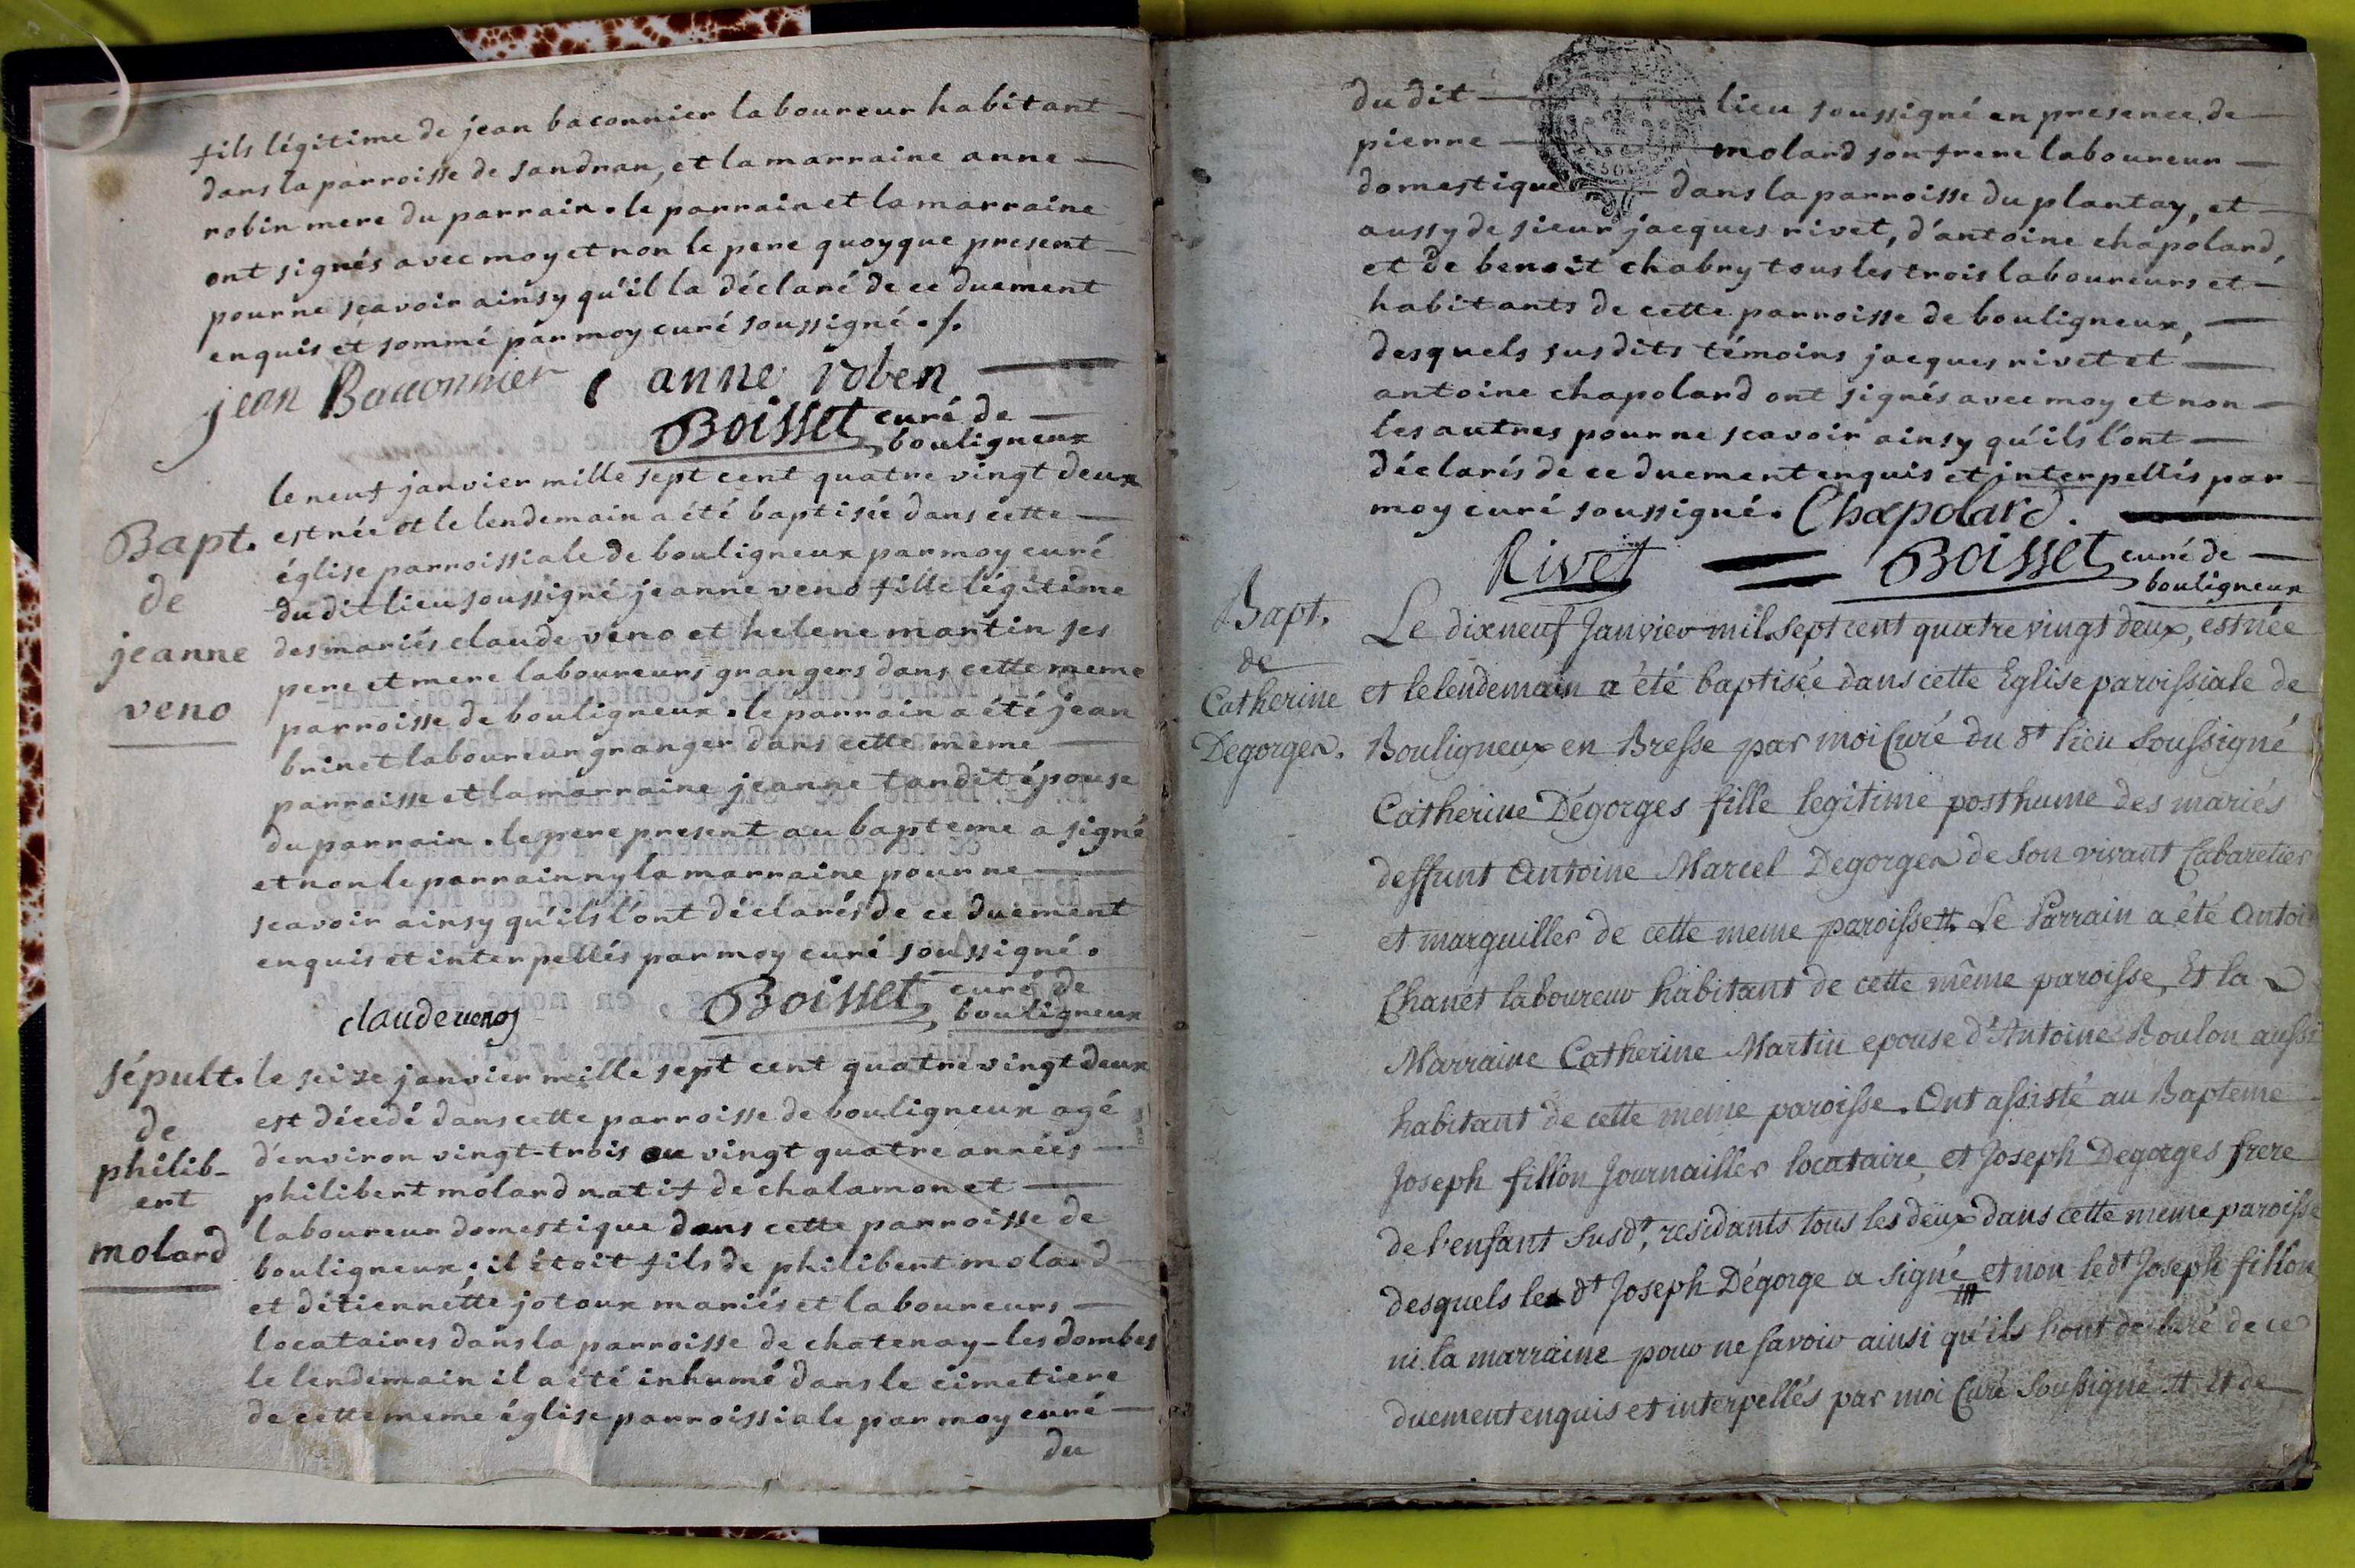 fils légitime de jean baconnier laboureur habitant
dans la parroisse de sandran, et la marraine anne
robin mere du parrain. le parrain et la marraine
ont signés avec moy et non le pere quoyque present
pour ne scavoir ainsy qu'il la déclaré de ce duement
enquis et sommé par moy curé soussigné ./.
jean Baconnier anne roben
Boisset curé de
bouligneux
le neuf janvier mille sept cent quatre vingt deux
Bapt. est née et le lendemain a été baptisée dans cette
église parroissiale de bouligneux par moy curé
de du dit lieu soussigné jeanne veno fille légitime
jeanne des mariés claude veno et helene martin ses
pere et mere laboureurs grangers dans cette meme
veno parroisse de bouligneux. le parrain a été jean
brinet laboureur granger dans cette meme
parroisse et la marraine jeanne tardit épouse
du parrain. le pere present au bapteme a signé
et non le parrain ny la marraine pour ne
scavoir ainsy qu'ils l'ont déclarés de ce duement
enquis et interpellés par moy curé soussigné.
claude venos Boisset curé de
bouligneux
sépult. le seize janvier mille sept cent quatre vingt deux
est décedé dans cette parroisse de bouligneux agé
de d'environ vingt-trois ou vingt quatre années
philib- philibert molard natif de chalamon et
ert laboureur domestique dans cette parroisse de
molard bouligneux; il étoit fils de philibert molard
et d'étiennette jotoux mariés et laboureurs
locataires dans la parroisse de chatenay-les dombes
le lendemain il a été inhumé dans le cimetiere
de cette meme église parroissiale par moy curé
du
du dit lieu soussigné en presence de
pierre molard son frere laboureur
domestique dans la parroisse du plantay, et
aussy de sieur jacques rivet, d'antoine chapolard,
et de benoit chabry tous les trois laboureurs et
habitants de cette parroisse de bouligneux,
desquels susdits témoins jacques rivet et
antoine chapolard ont signés avec moy et non
les autres pour ne scavoir ainsy qu'ils l'ont
déclarés de ce duement enquis et interpellés par
moy curé soussigné. Chapolard.
Rivet Boisset curé de
bouligneux
Bapt. Le dixneuf Janvier mil sept cent quatre vingt deux, est née
de
Catherine et le lendemain a été baptisée dans cette Eglise paroissiale de
Degorges. Bouligneux en Bresse par moi Curé du dt lieu Soussigné
Catherine Dégorges fille legitime posthume des mariés
deffunt Antoine Marcel Degorges de son vivant Cabaretier
et marguiller de cette meme paroisse tt. Le Parrain a été Antoi
Chanet laboureur habitant de cette même paroisse, Et la
Marraine Catherine Martin epouse d'Antoine Boulon aussi
habitant de cette meme paroisse. Ont assisté au Bapteme
Joseph fillon Journailler locataire, et Joseph Degorges frere
de l'enfant susdt, residants tous les deux dans cette meme paroisse
desquels le dt Joseph Dégorge a signé et non le dt Joseph fillon
ni la marraine pour ne savoir ainsi qu'ils l'ont declaré de ce
duement enquis et interpellés par moi Curé Soussigné tt et de